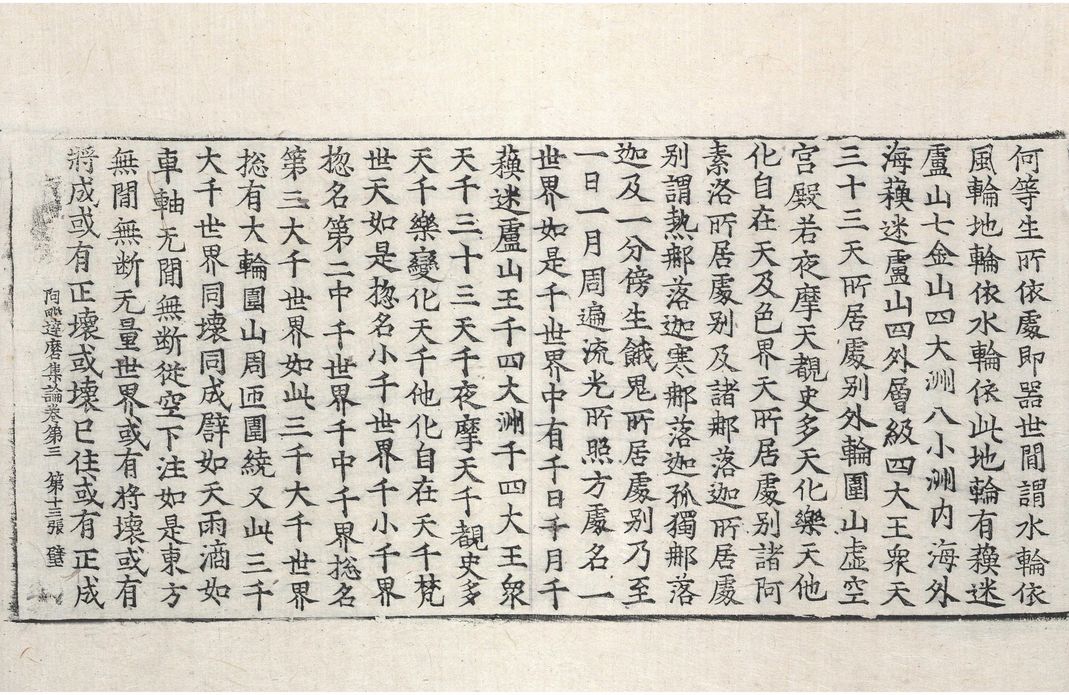 何等生所依處即器世間謂水輪依
風輪地輪依水輪依此地輪有蘇迷
盧山七金山四大洲八小洲内海外
海蘇迷盧山四外層級四大王衆天
三十三天所居處别外輪圍山虛空
宫殿若夜摩天覩史多天化樂天他
化自在天及色界天所居處别諸阿
素洛所居處别及諸郍落迦所居處
别謂熱郍落迦寒郍落迦孤獨郍落
迦及一分傍生餓鬼所居處别乃至
一日一月周遍流光所照方處名一
世界如是千世界中有千日千月千
蘇迷盧山王千四大洲千四大王衆
天千三十三天千夜摩天千覩史多
天千樂變化天千他化自在天千梵
世天如是揔名小千世界千小千界
揔名第二中千世界千中千界揔名
第三大千世界如此三千大千世界
揔有大輪圍山周匝圍繞又此三千
大千世界同壞同成譬如天雨滴如
車軸无間無断從空下注如是東方
無間無断无量世界或有將壞或有
將成或有正壞或壞已住或有正成
阿毗達磨集論卷第三 第十三張 壁